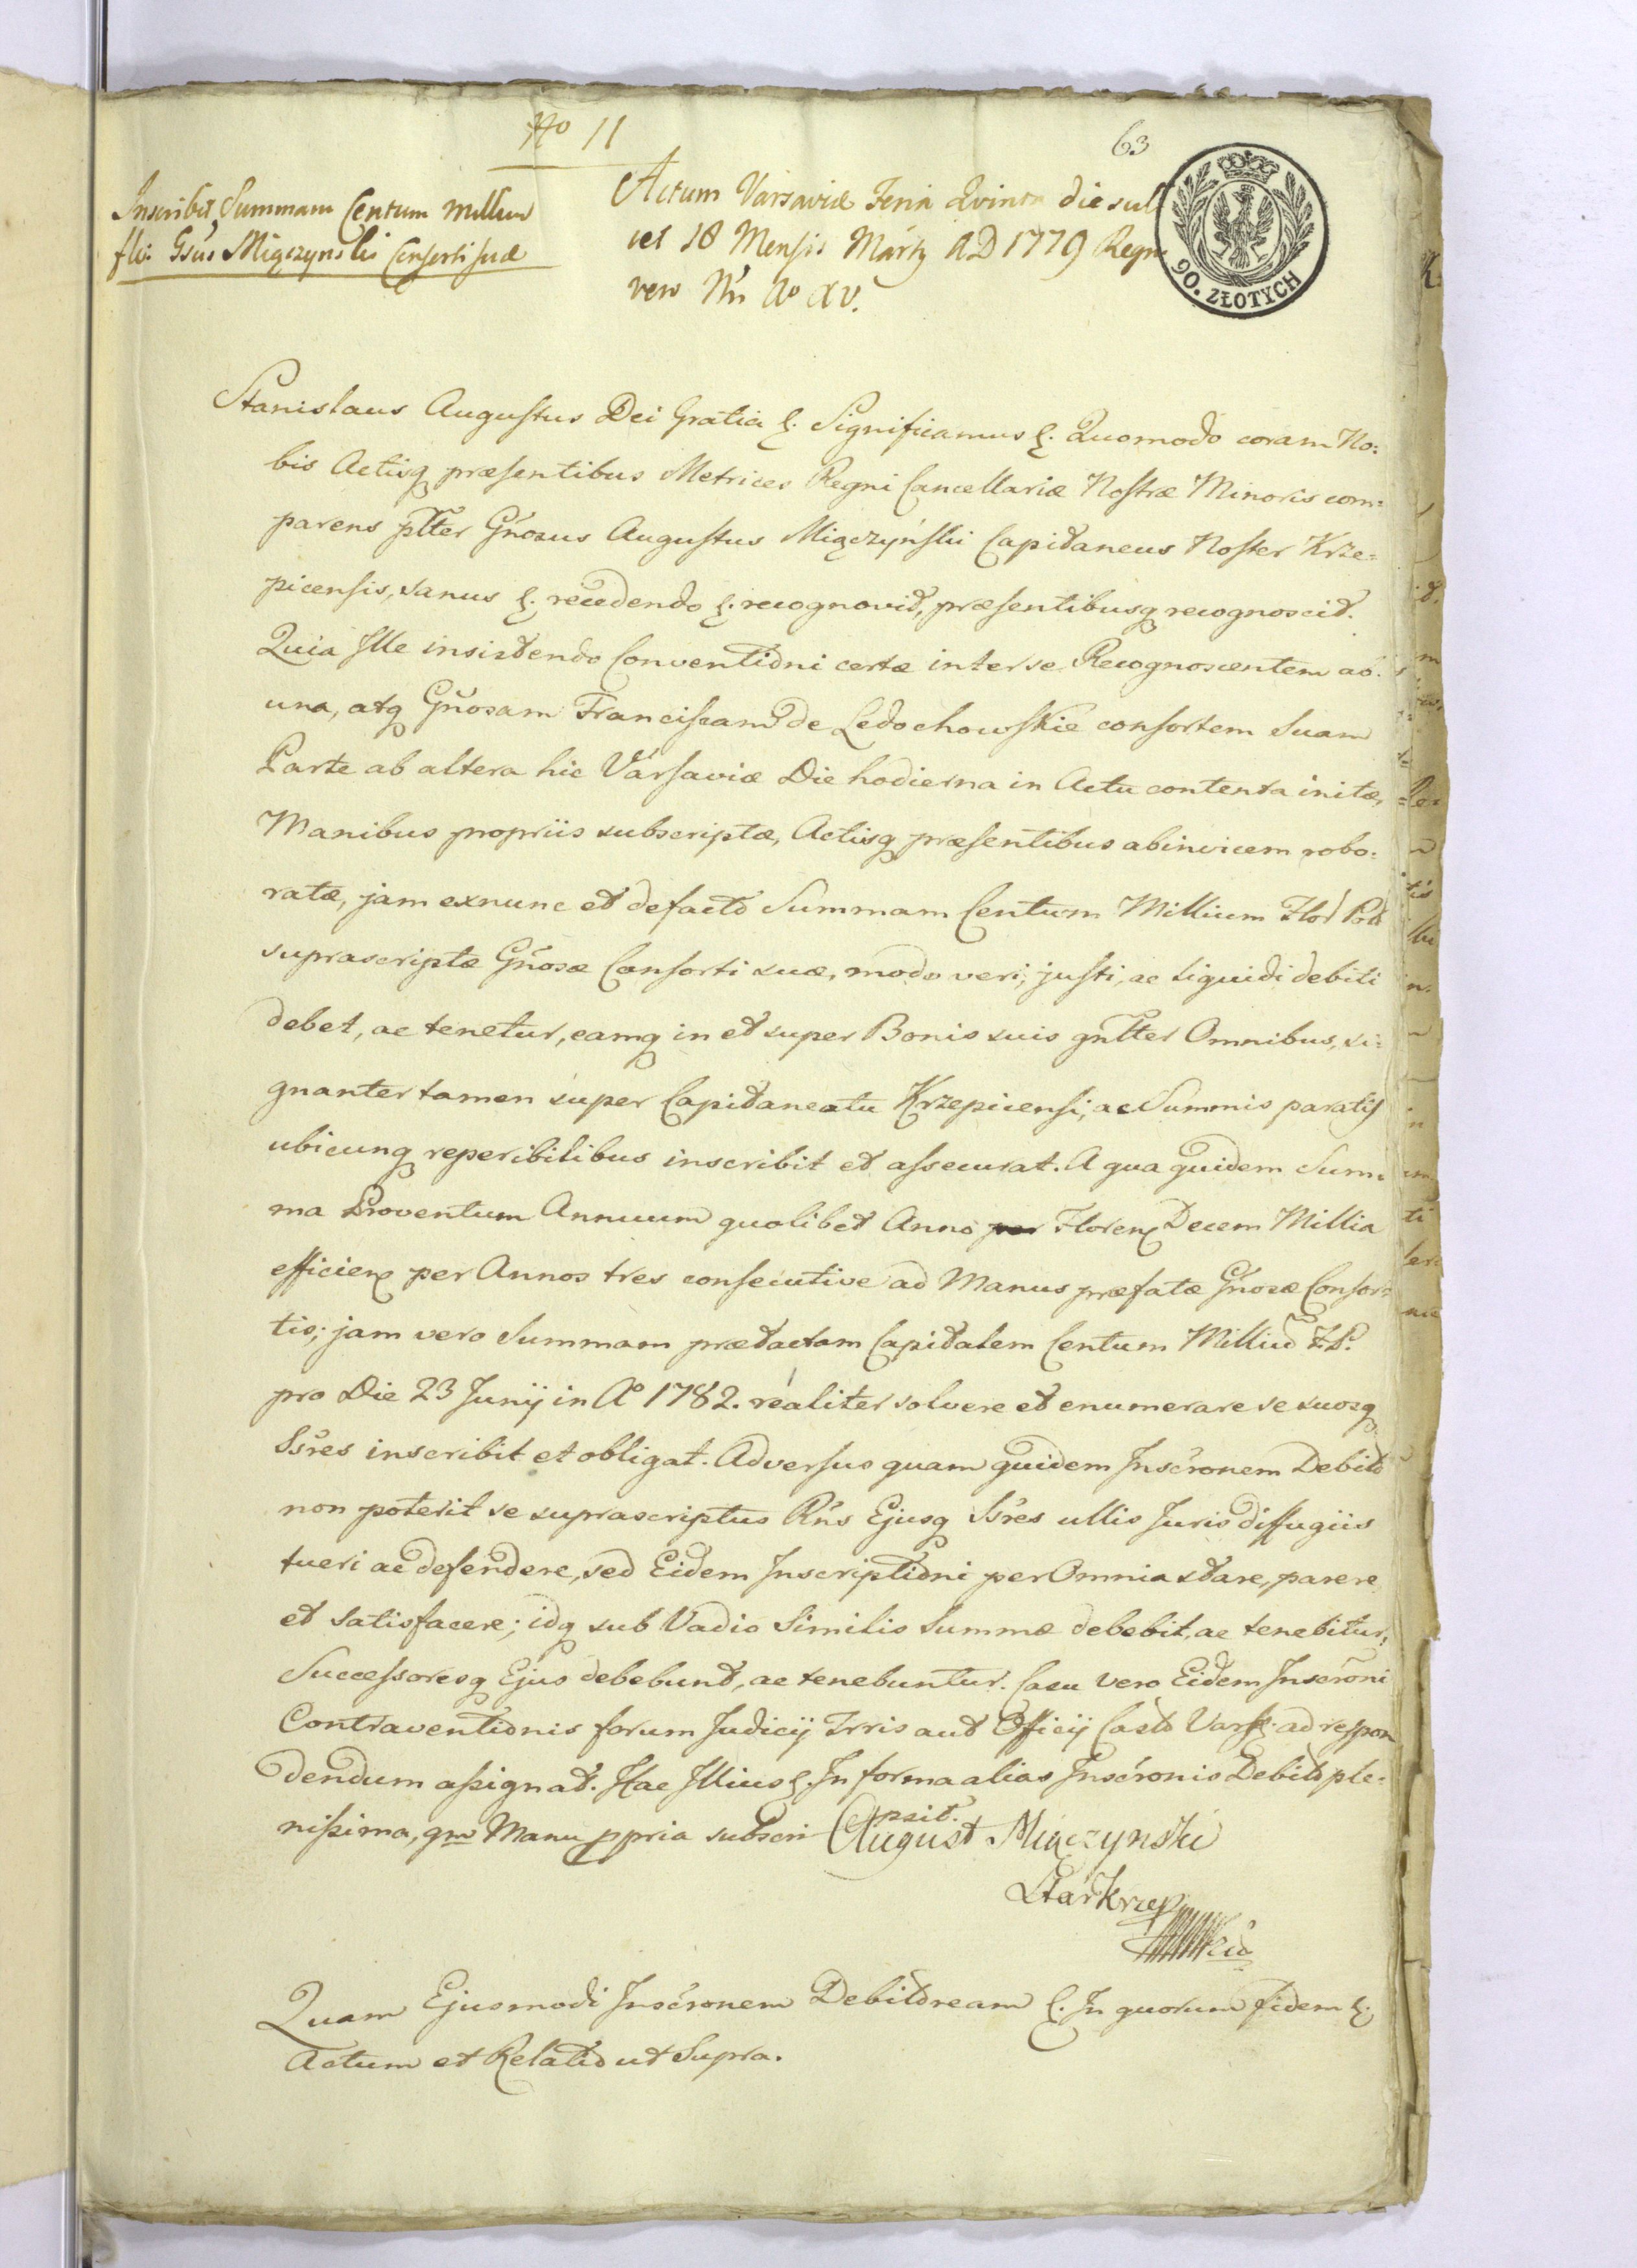 No 11
63
Inscribit Summam Centum millium
flo: Gsus Miączynski Consorti suæ
Actum Varsaviæ Feria Qvinta die
18 Mensis Martij AD 1779 Regni
vero Nri Ao XV.
90. ZŁOTYCH
Stanislaus Augustus Dei Gratia &. Significamus &. Quomodo coram No:
bis Actisq præsentibus Metrices Regni Cancellariæ Nostræ Minoris com=
parens pltter Gnosus Augustus Miączyński Capitaneus Noster Krze=
picensis, sanus &. recedendo &. recognovit, præsentibusq recognoscit.
Quia Ille insistendo Conventioni certæ inter se Recognoscentem ab
una, atq Gnosam Franciscam de Ledochowskie consortem Suam
Parte ab altera hic Varsaviæ Die hodierna in Actu contenta initæ,
Manibus propriis subscriptæ, Actisq præsentibus abinvicem robo:
ratæ, jam exnunc et defacto Summam Centum Millium Flor Pol
suprascriptæ Gnosæ Consorti suæ, modo veri, justi, ac liquidi debiti
debet, ac tenetur, eamq in et super Bonis suis gnltter Omnibus, si=
gnanter tamen super Capitaneatu Krzepicensi, ac Summis paratis
ubicunq reperibilibus inscribit et assecurat. A qua quidem Sum=
ma Proventum Annuum quolibet Anno Floren Decem Millia
efficien per Annos tres consecutive ad Manus præfatæ Gnosæ Consor=
tis; jam vero Summam prætactam Capitalem Centum Milliu F.P.
pro Die 23 Junij in Ao 1782. realiter solvere et enumerare se suosq
Ssres inscribit et obligat. Adversus quam quidem Inscronem Debito
non poterit se suprascriptus Rns Ejusq Ssres ullis Juris diffugiis
tueri ac defendere, sed Eidem Inscriptioni per Omnia stare, parere
et satisfacere; idq sub Vadio Similis Summæ debebit, ac tenebitur,
Successoresq Ejus debebunt, ac tenebuntur. Casu vero Eidem Inscroni
Contraventionis forum Judicij Trris aut Officij Castr Vars. ad respon
dendum assignat. Hac Illius &. In forma alias Inscronis Debito ple=
nissima, qm Manu ppria subscri
psit. August Miączynski
Star Krzep
Quam Ejusmodi Inscronem Debitoream &. In quorum fidem &.
Actum et Relatio ut Supra.